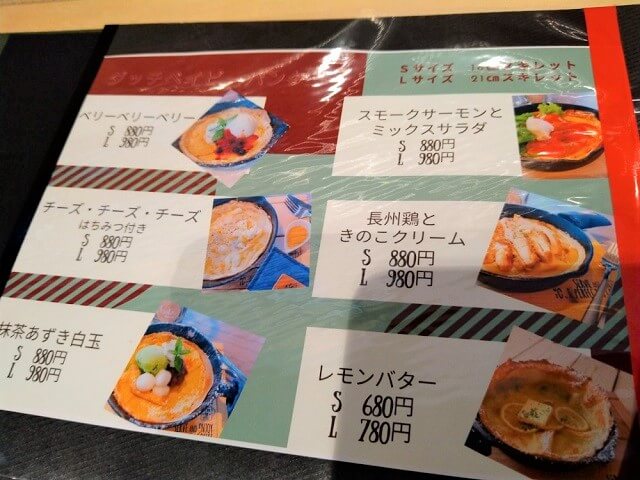 ダッチベイビーパンケーキ
Sサイズ 16cmスキレット
Lサイズ 21cmスキレット
ベリーベリーベリー
S 880円
L 980円
スモークサーモンと
ミックスサラダ
S 880円
L 980円
チーズ・チーズ・チーズ
はちみつ付き
S 880円
L 980円
長州鶏と
きのこクリーム
S 880円
L 980円
抹茶あずき白玉
S 880円
L 980円
レモンバター
S 680円
L 780円